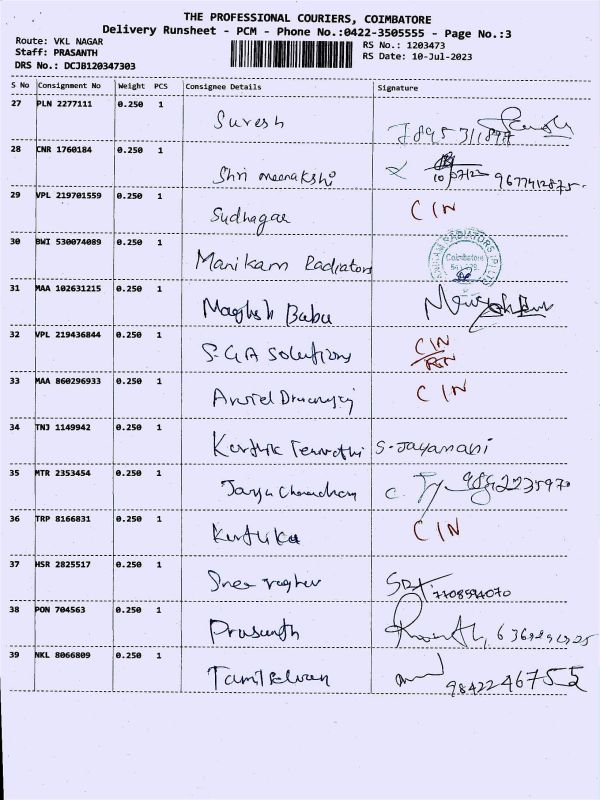 THE PROFESSIONAL COURIERS, COIMBATORE
Delivery Runsheet - PCM - Phone No.:0422-3505555 - Page No.:3
Route: VKL NAGAR
Staff: PRASANTH
DRS No.: DCJB120347303
RS No.: 1203473
RS Date: 10-Jul-2023
S No Consignment No Weight PCS Consignee Details Signature
27 PLN 2277111 0.250 1
Suresh
28 CNR 1760184 0.250 1
Shri meenakshi 10/07/23 9677412875.
29 VPL 219701559 0.250 1
Sudhagar CIN
30 BWI 530074089 0.250 1
Manikam Radiators Coimbatore
31 MAA 102631215 0.250 1
Magesh Babu
32 VPL 219436844 0.250 1
S.G.A Solutions CIN
33 MAA 860296933 0.250 1
Arvid CIN
34 TNJ 1149942 0.250 1
Karthik S. Jayamani
35 MTR 2353454 0.250 1
9842235970
36 TRP 8166831 0.250 1
Karthika CIN
37 HSR 2825517 0.250 1
Sree raghav 7708594070
38 PON 704563 0.250 1
Prasanth
39 NKL 8066809 0.250 1
Tamilselvan 9842246755